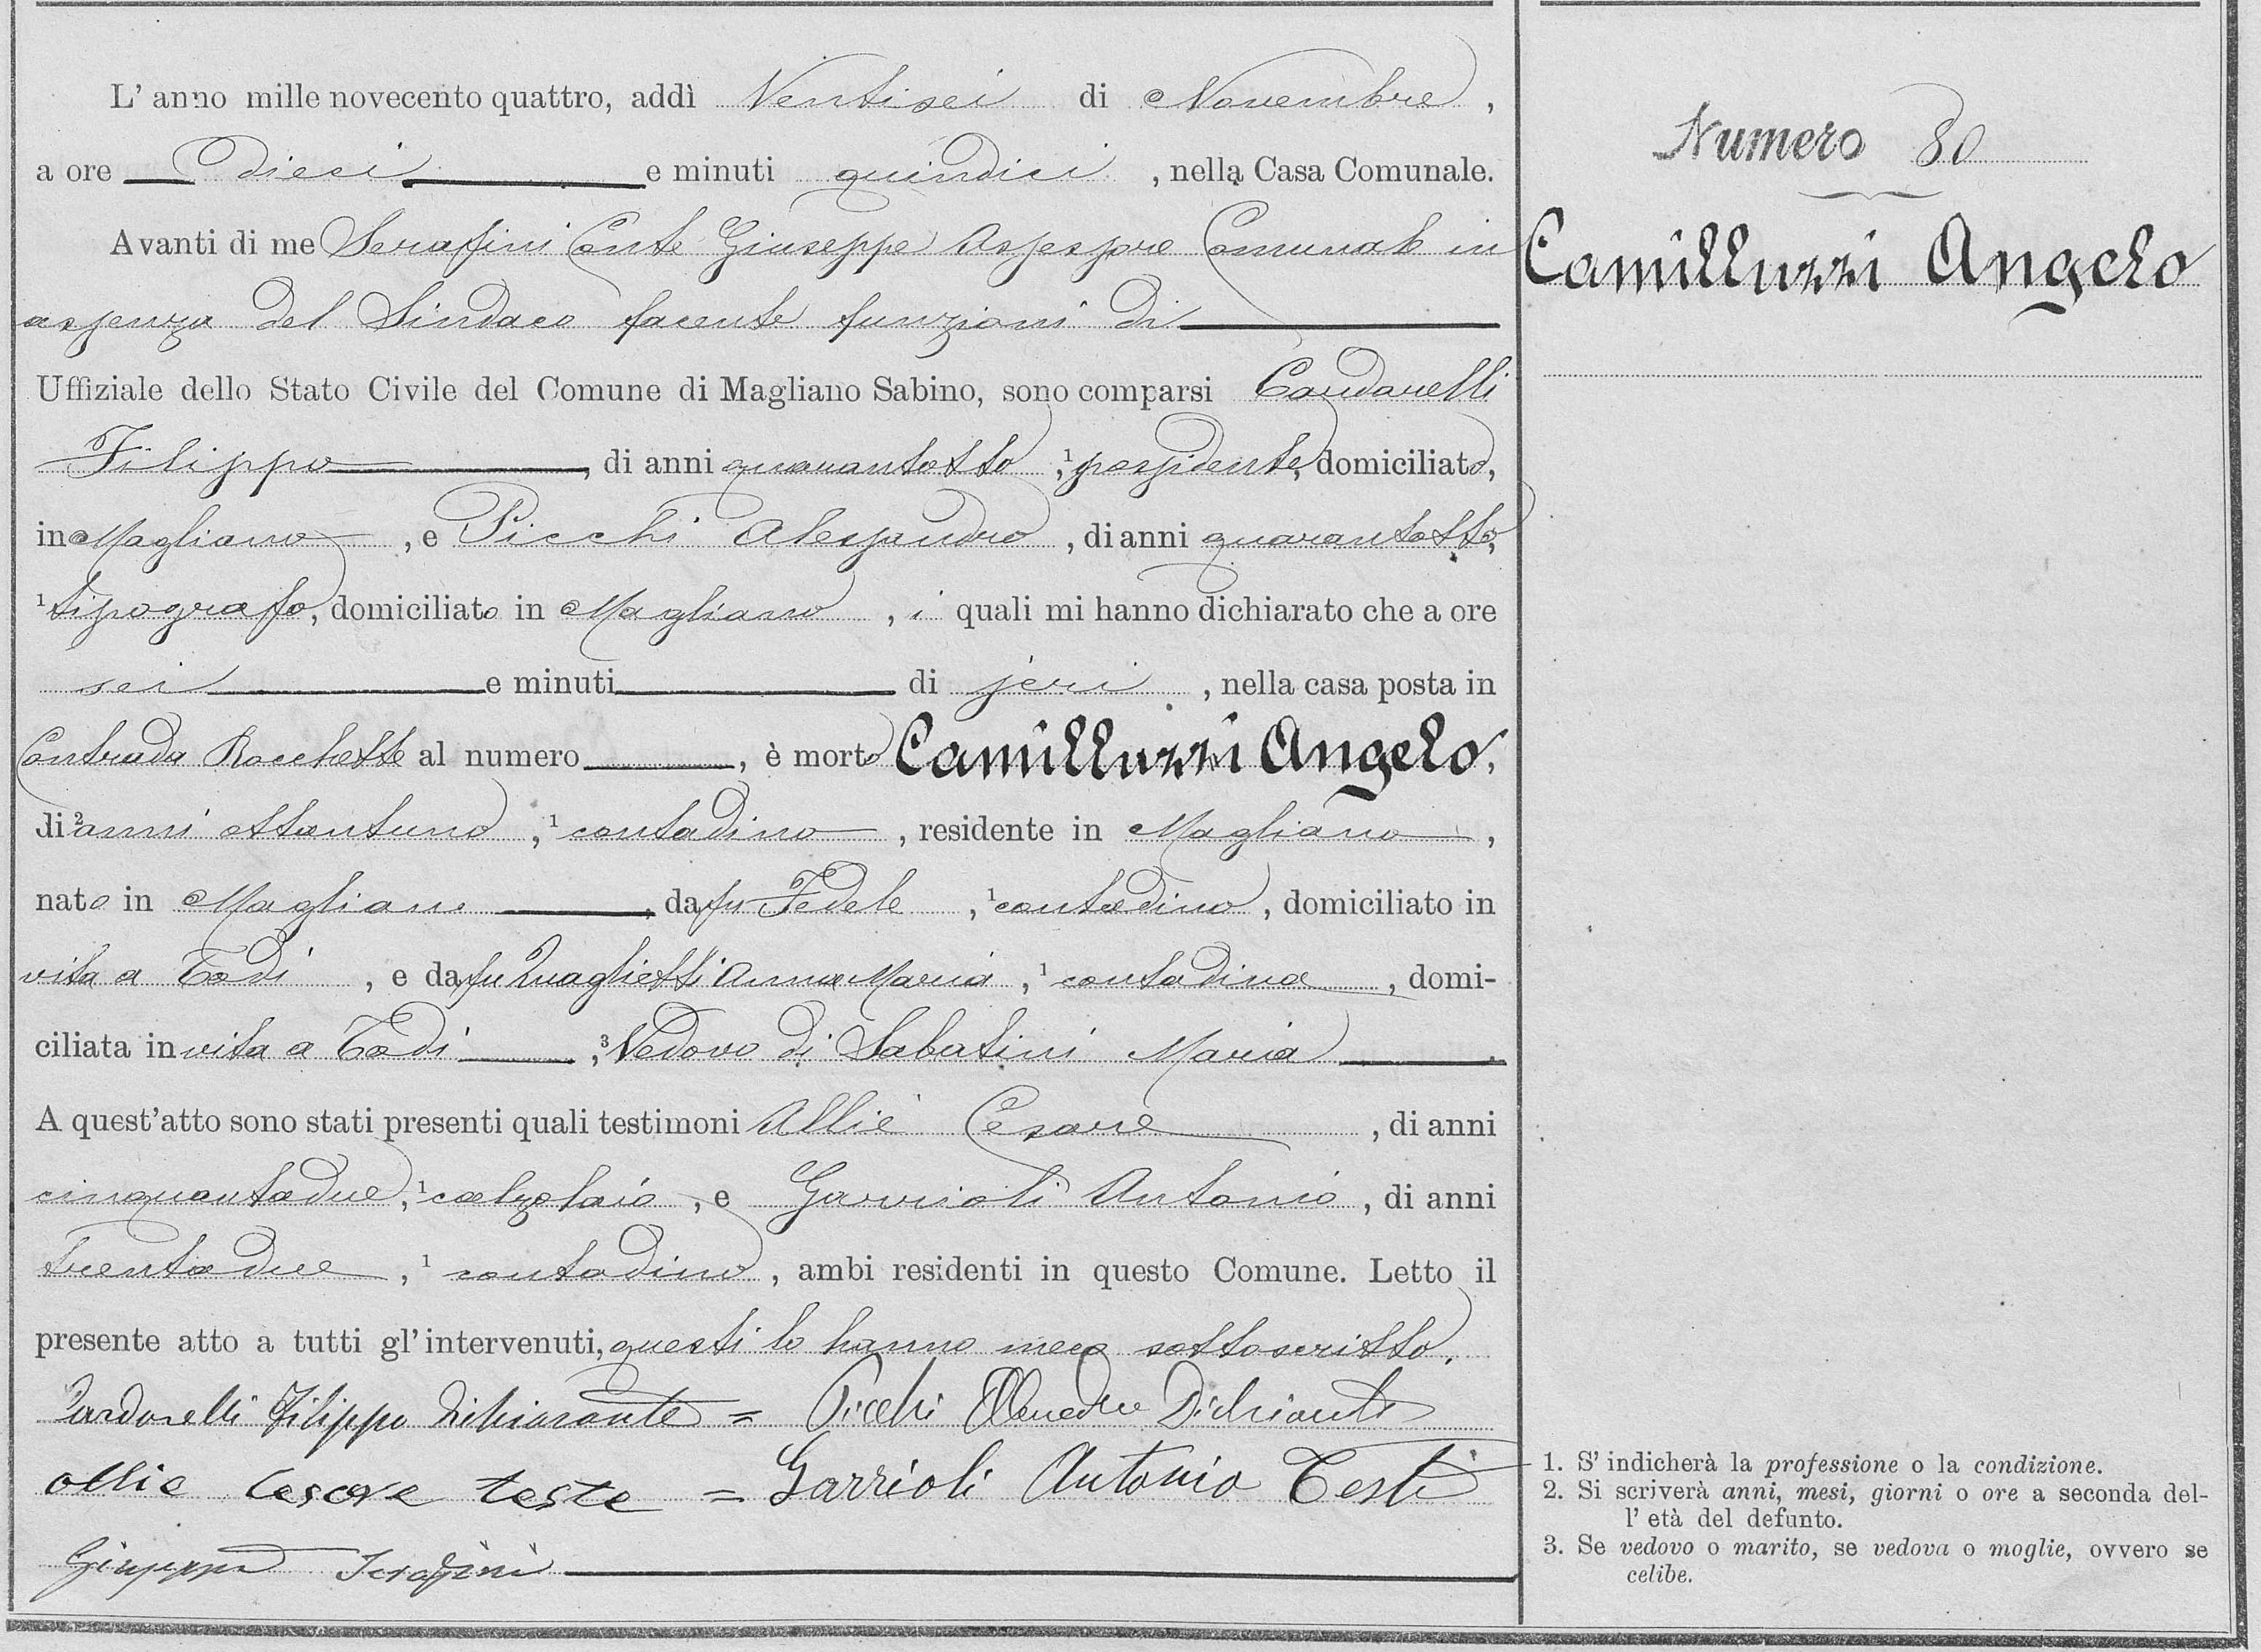 L' anno mille novecento quattro, addì Ventisei di Novembre,
a ore dieci e minuti quindici, nella Casa Comunale.
Avanti di me Serafini Conte Giuseppe Assessore Comunale in
assenza del Sindaco facente funzioni di
Uffiziale dello Stato Civile del Comune di Magliano Sabino, sono comparsi Cardarelli
Filippo, di anni quarantotto, ¹possidente, domiciliato,
in Magliano, e Picchi Alessandro, di anni quarantotto,
¹tipografo, domiciliato in Magliano, i quali mi hanno dichiarato che a ore
sei e minuti di jeri, nella casa posta in
Contrada Rocchette al numero, è morto Camilluzzi Angelo,
di ²anni ottantuno, ¹contadino, residente in Magliano,
nato in Magliano, da fu Fedele, ¹contadino, domiciliato in
vita a Todi, e da fu Quaglietti Anna Maria, ¹contadina, domi-
ciliata in vita a Todi, ³Vedovo di Sabatini Maria.
A quest'atto sono stati presenti quali testimoni Allie Cesare, di anni
cinquantadue, ¹calzolaio, e Garrioli Antonio, di anni
trentadue, ¹contadino, ambi residenti in questo Comune. Letto il
presente atto a tutti gl'intervenuti, questi lo hanno meco sottoscritto.
Cardarelli Filippo dichiarante = Picchi Dichiarante
Allie Cesare teste = Garrioli Antonio Teste
Giuseppe Serafini
Numero 80
Camilluzzi Angelo
1. S' indicherà la professione o la condizione.
2. Si scriverà anni, mesi, giorni o ore a seconda del-
l' età del defunto.
3. Se vedovo o marito, se vedova o moglie, ovvero se
celibe.